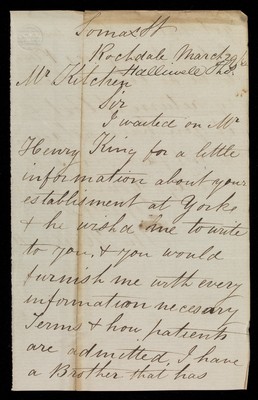 Tomas St
Rochdale March 29
Halliwell Thos.
Mr Kitchen
Sir
I waited on Mr
Henry King for a little
information about your
establisment at Yorke
& he wishd me to write
to you, & you would
furnish me with every
information necesary
Terms & how patients
are admitted, I have
a Brother that has